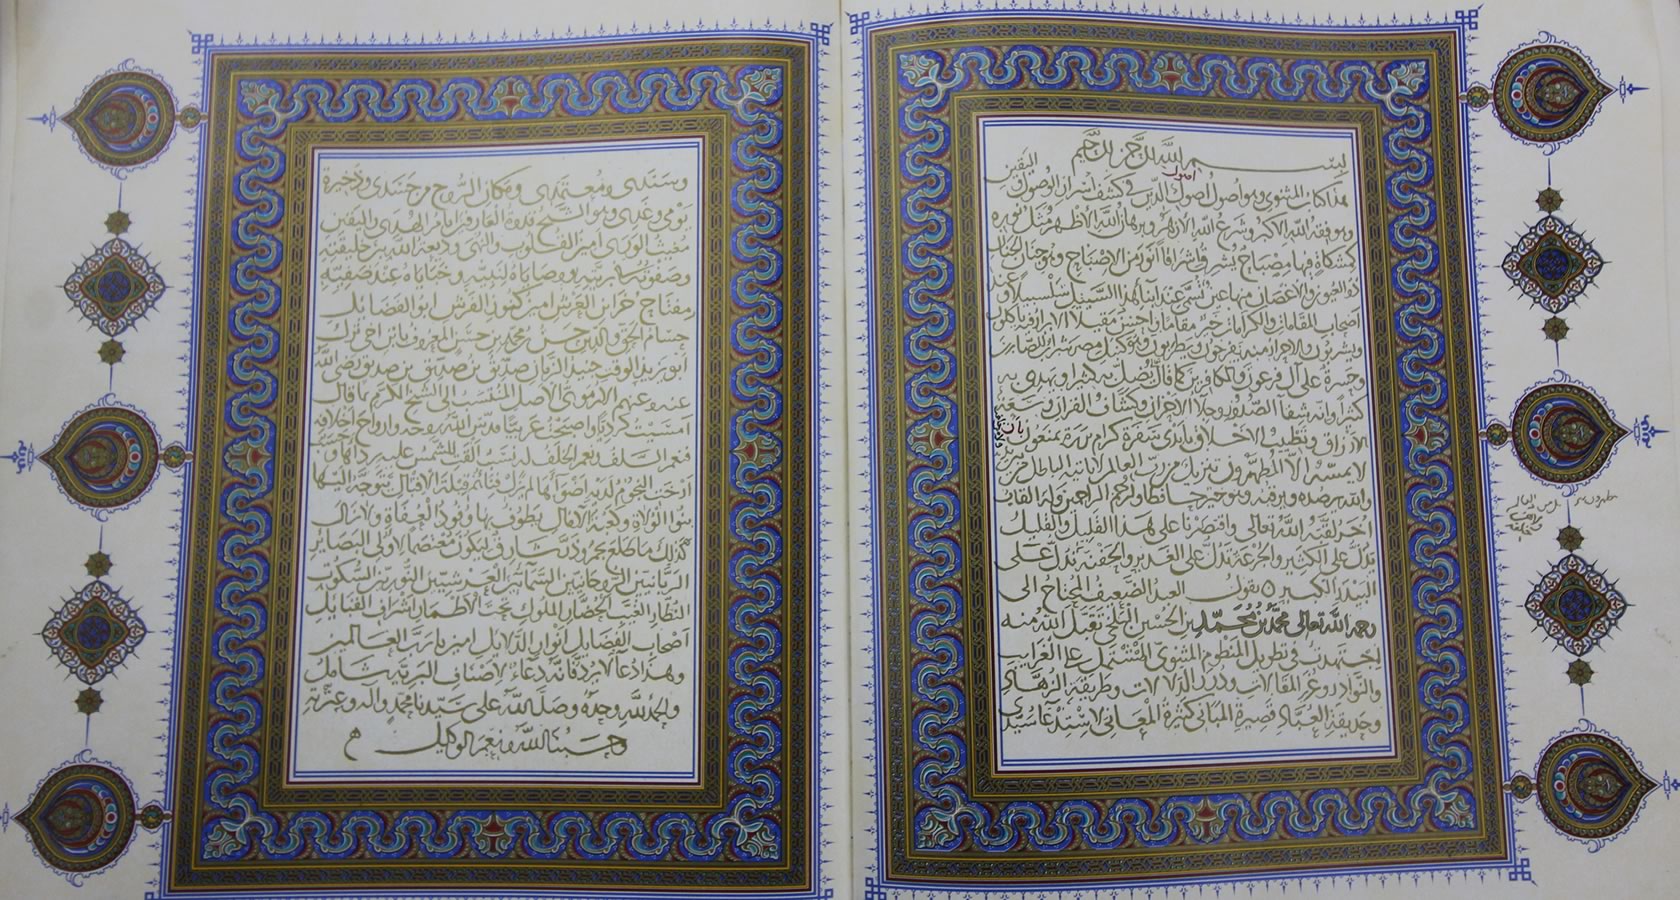 بسم الله الرحمن الرحيم
هذا كتاب المثنوي وهو اصول اصول اصول الدين في كشف اسرار الوصول واليقين
وهو فقه الله الاكبر وشرع الله الازهر وبرهان الله الاظهر مثل نوره
كمشكاة فيها مصباح يشرق اشراقا انور من الاصباح وهو جنان الجنان
ذو العيون والاغصان منها عين تسمى عند ابناء هذا السبيل سلسبيلا وعند
اصحاب المقامات والكرامات خير مقاما واحسن مقيلا الابرار فيه ياكلون
ويشربون والاحرار منه يفرحون ويطربون وهو كنيل مصر شراب للصابرين
وحسرة على آل فرعون والكافرين كما قال يضل به كثيرا ويهدي به
كثيرا وانه شفاء الصدور وجلاء الاحزان وكشاف القران وسعة
الارزاق وتطييب الاخلاق بايدي سفرة كرام بررة يمنعون بان
لا يمسه الا المطهرون تنزيل من رب العالمين لا ياتيه الباطل من بين
والله يرصده ويرقبه وهو خير حافظا وهو ارحم الراحمين وله القاب
اخر لقبه الله تعالى واقتصرنا على هذا القليل والقليل
يدل على الكثير والجرعة تدل على الغدير والحفنة تدل على
البيدر الكبير يقول العبد الضعيف المحتاج الى
رحمة الله تعالى محمد بن محمد بن الحسين البلخي تقبل الله منه
اجتهدت في تطويل المنظوم المثنوي المشتمل على الغرايب
والنوادر وغرر المقالات ودرر الدلالات وطريقة الزهاد
وحديقة العباد قصيرة المباني كثيرة المعاني لاستدعاء سيدي
وسندي ومعتمدي ومكان الروح من جسدي وذخيرة
يومي وغدي وهو الشيخ قدوة العارفين امام الهدى واليقين
مغيث الورى امين القلوب والنهى وديعة الله بين خليقته
وصفوته في بريته ووصاياه لنبيه وخباياه عند صفيه
مفتاح خزاين العرش امين كنوز الفرش ابو الفضايل
حسام الحق والدين حسن بن محمد بن حسن المعروف بابن اخي ترك
ابو يزيد الوقت جنيد الزمان صديق بن صديق بن صديق رضي الله
عنه وعنهم الارموي الاصل المنتسب الى الشيخ المكرم بما قال
امسيت كرديا واصبحت عربيا قدس الله روحه وارواح اخلافه
فنعم السلف ونعم الخلف له نسب القت الشمس عليه رداها وحسب
ارخت النجوم لديه اضواءها لم يزل فناؤهم قبلة الاقبال يتوجه اليها
بنوا الولاة وكعبة الامال يطوف بها وفود العفاة ولا زال
كذلك ما طلع نجم وذر شارق ليكون معتصما لاولى البصاير
الربانيين الروحانيين السمائيين العرشيين النوريين السكوت
النظار الغيب الحضار الملوك تحت الاطمار اشراف القبايل
اصحاب الفضايل انوار الدلايل امين يا رب العالمين
وهذا دعاء لا يرد فانه دعاء لاصناف البرية شامل
والحمد لله وحده وصلى الله على سيدنا محمد وآله وعترته
وحسبنا الله ونعم الوكيل